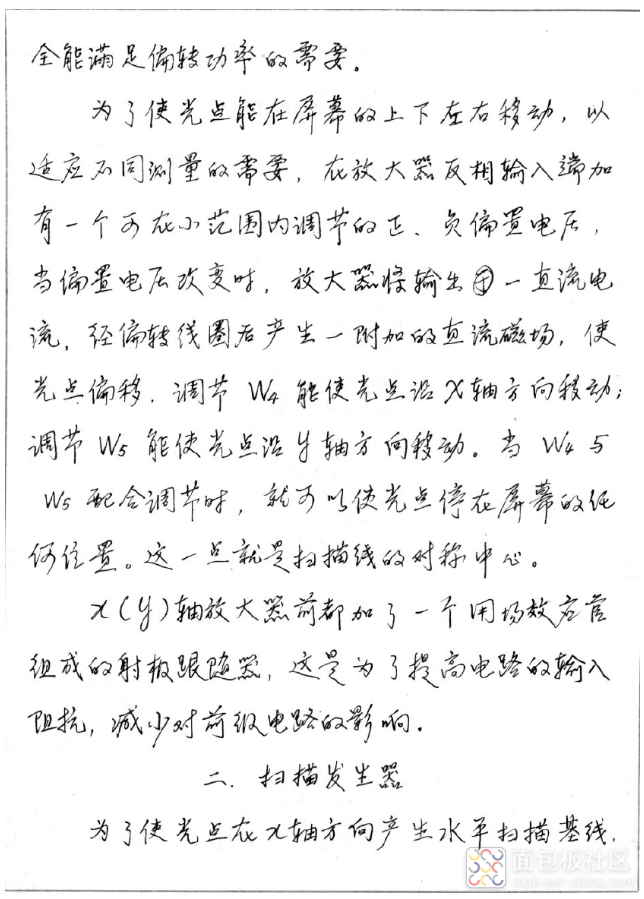 全能满足偏转功率的需要。
为了使光点能在屏幕的上下左右移动，以
适应不同测量的需要，在放大器反相输入端加
有一个可在小范围内调节的正、负偏置电压，
当偏置电压改变时，放大器将输出一直流电
流，经偏转线圈后产生一附加的直流磁场，使
光点偏移．调节 W4 能使光点沿 X轴方向移动；
调节 W5 能使光点沿 y轴方向移动。当 W4 与
W5 配合调节时，就可以使光点停在屏幕的任
何位置。这一点就是扫描线的对称中心。
x(y)轴放大器前都加了一个用场效应管
组成的射极跟随器，这是为了提高电路的输入
阻抗，减少对前级电路的影响．
二．扫描发生器
为了使光点在x轴方向产生水平扫描基线，
面包板社区
mbb.eet-china.com